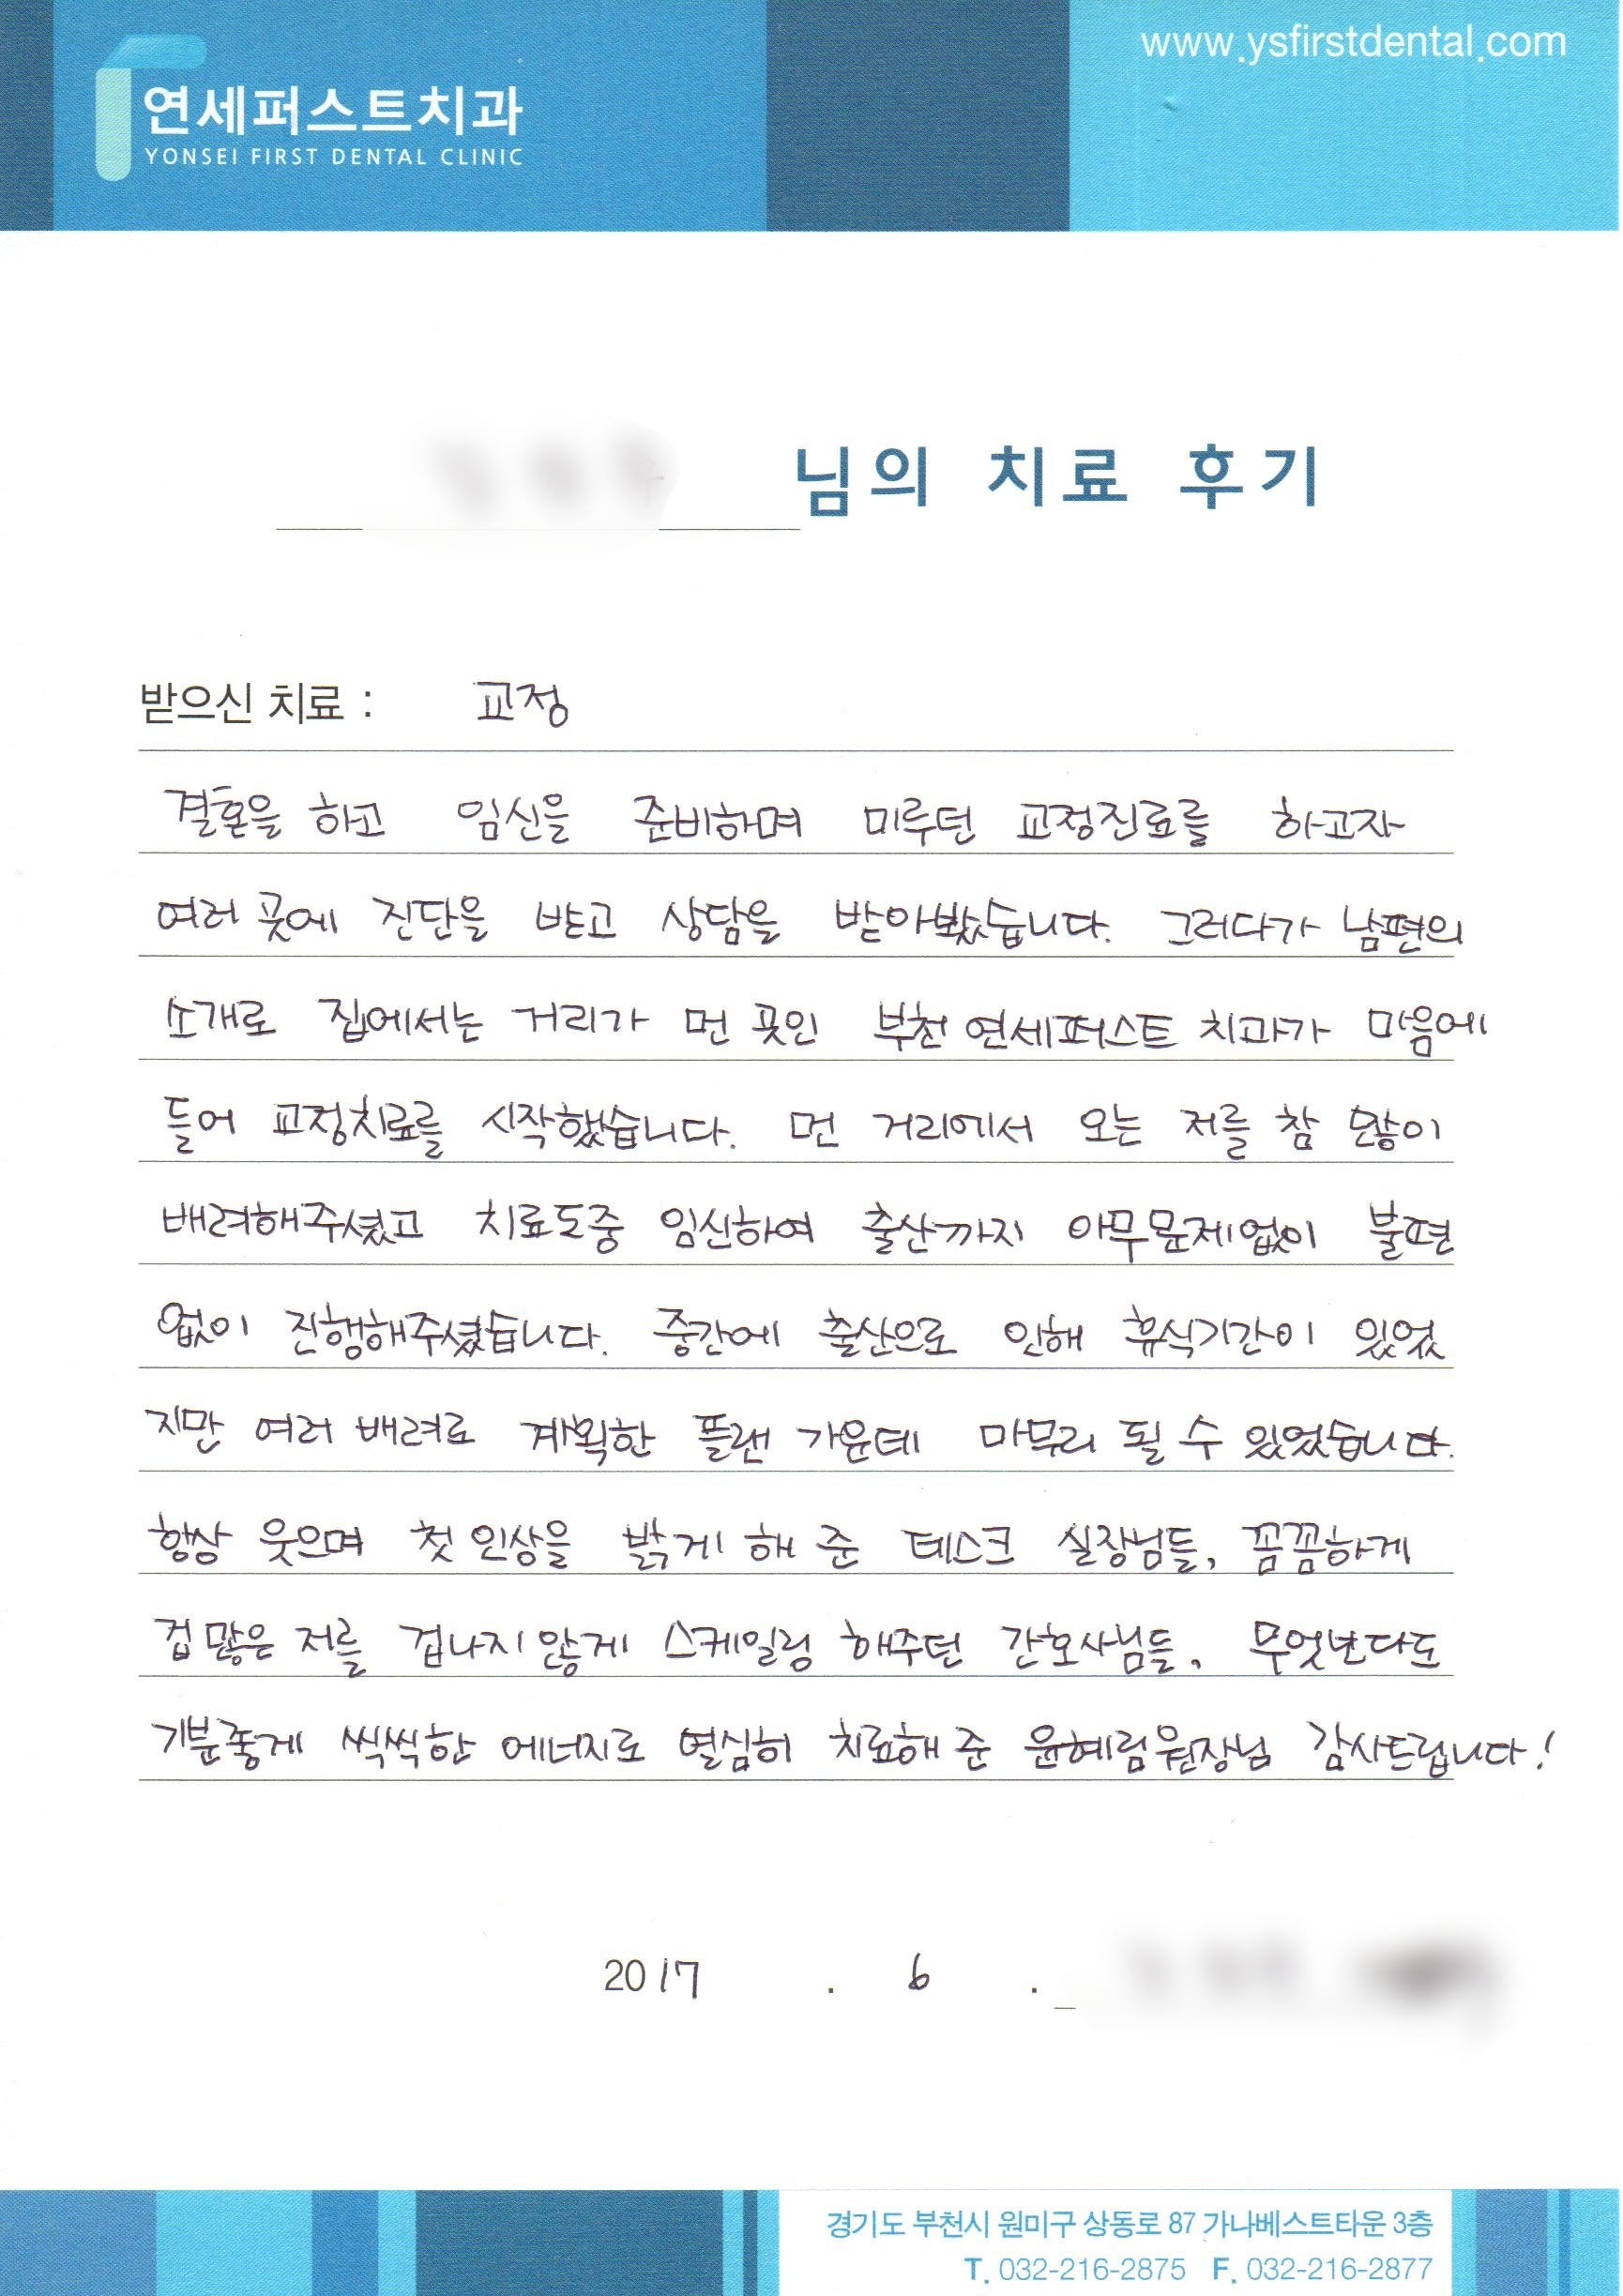 www.ysfirstdental.com
연세퍼스트치과
YONSEI FIRST DENTAL CLINIC
님의 치료 후기
받으신 치료 : 교정
결혼을 하고 임신을 준비하며 미루던 교정진료를 하고자
여러 곳에 진단을 받고 상담을 받아봤습니다. 그러다가 남편의
소개로 집에서는 거리가 먼 곳인 부천 연세퍼스트 치과가 마음에
들어 교정치료를 시작했습니다. 먼 거리에서 오는 저를 참 많이
배려해주셨고 치료도중 임신하여 출산까지 아무문제없이 불편
없이 진행해주셨습니다. 중간에 출산으로 인해 휴식기간이 있었
지만 여러 배려로 계획한 플랜 가운데 마무리 될 수 있었습니다.
항상 웃으며 첫 인상을 밝게 해 준 데스크 실장님들, 꼼꼼하게
겁많은 저를 겁나지 않게 스케일링 해주던 간호사님들, 무엇보다도
기분좋게 씩씩한 에너지로 열심히 치료해 준 윤혜림원장님 감사드립니다!
2017 . 6 .
경기도 부천시 원미구 상동로 87 가나베스트타운 3층
T. 032-216-2875 F. 032-216-2877